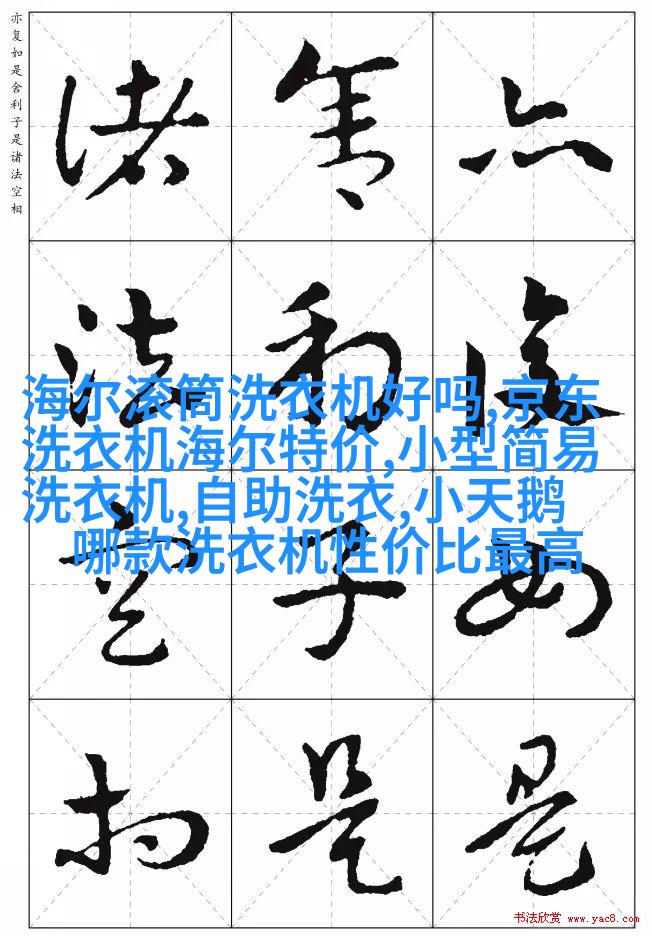 亦复如是舍利子是诸法空相
亦复如是
舍利子是
诸法空相
海尔滚筒洗衣机好吗,京东
洗衣机海尔特价,小型简易
洗衣机,自助洗衣,小天鹅
哪款洗衣机性价比最高
书法欣赏 www.yac8.com